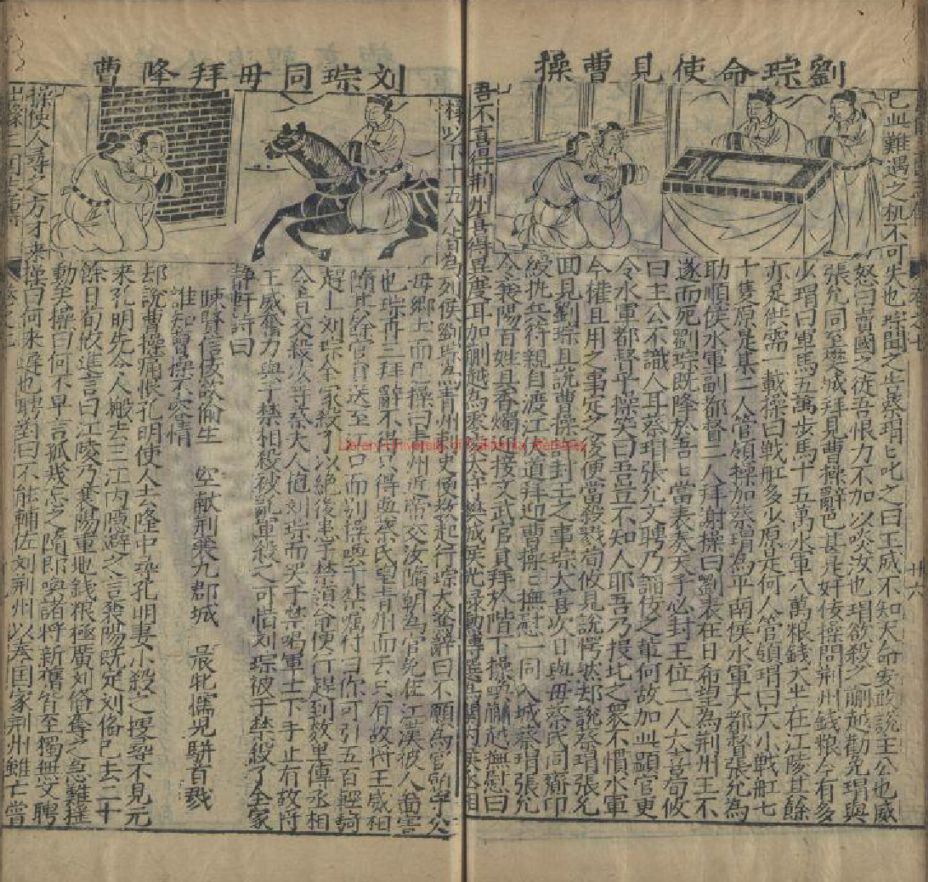 劉琮命使見曹操
已此難遇之机不可失也琮聞之告蔡瑁〻叱之曰王威不知大命安敢說主公也威
怒曰賣國之徒吾恨力不加以啖汝也瑁欲殺之蒯越勸免瑁與
張允同至樊城拜見曹操辭色甚是奸佞操問荊州錢粮今有多
少瑁曰軍馬五萬步馬十五萬水軍八萬粮錢大半在江陵其餘
亦足供需一載操曰戰舡多少原是何人管領瑁曰大小戰舡七
十隻原是某二人官領操加蔡瑁為平南侯水軍大都督張允為
助順侯水軍副都督二人拜謝操曰劉表在日希望為荊州王不
遂而死劉琮既降於吾〻當表奏天子必封王位二人大喜荀攸
曰主公不識人耳蔡瑁張允文聘乃謟佞之輩何故加此顯官更
令水軍都督乎操笑曰吾豈不知人耶吾乃投北之衆不慣水軍
今權且用之事定之後便當殺戮荀攸見說愕然却說蔡瑁張允
回見劉琮且說曹操許封王之事琮大喜次日與毋蔡氏同齎印
綬執兵符親自渡江伏道拜迎曹操三撫慰一同入城蔡瑁張允
令襄陽百姓具香燭迎接文武官員拜於階下操喚蒯越撫慰曰
吾不喜得荊州喜得異度耳加蒯越為太守樊城侯光祿勳傅巽為關內侯丞相
刘琮同毋拜降曹
椽以下十五人皆為列侯劉琮為青州刺史便敎起行琮大驚辭曰不願為官願守父
毋鄉土而已操曰青州近帝交汝隨朝為官免在江漢被人啚害
也琮再三拜辭不准只得與蔡氏望青州而去只有故將王威相
隨其餘官員送至江口而別操喚于禁嘱付曰你可引五百輕騎
趕上刘琮全家殺了以絕後患于禁領命便行趕到數里傳丞相
令旨交殺次等蔡夫人抱刘琮而哭于禁喝軍士下手止有故将
王威奮力與于禁相殺被亂軍殺之可惜刘琮被于禁殺了全家
靜軒詩曰
睞賢信佞欲偷生 空献荊襄九郡城 最死儒兒駢首戮
誰知曹操不容情
却說曹操痛恨孔明使人去隆中尋孔明妻小殺之搜尋不見元
来孔明先令人搬去三江內隱避之言襄陽既定刘俻巳去二十
餘日荀攸進言曰江陵乃襄陽重地錢粮極廣刘俻奪之急難搖
動矣操曰何不早言孤幾忘之隨即喚諸將新舊皆至獨無文聘
操使人尋之方才来操曰何来遲也聘對曰不能輔佐刘荊州以奉囯家荊州雖亡當
Library University of California Berkeley